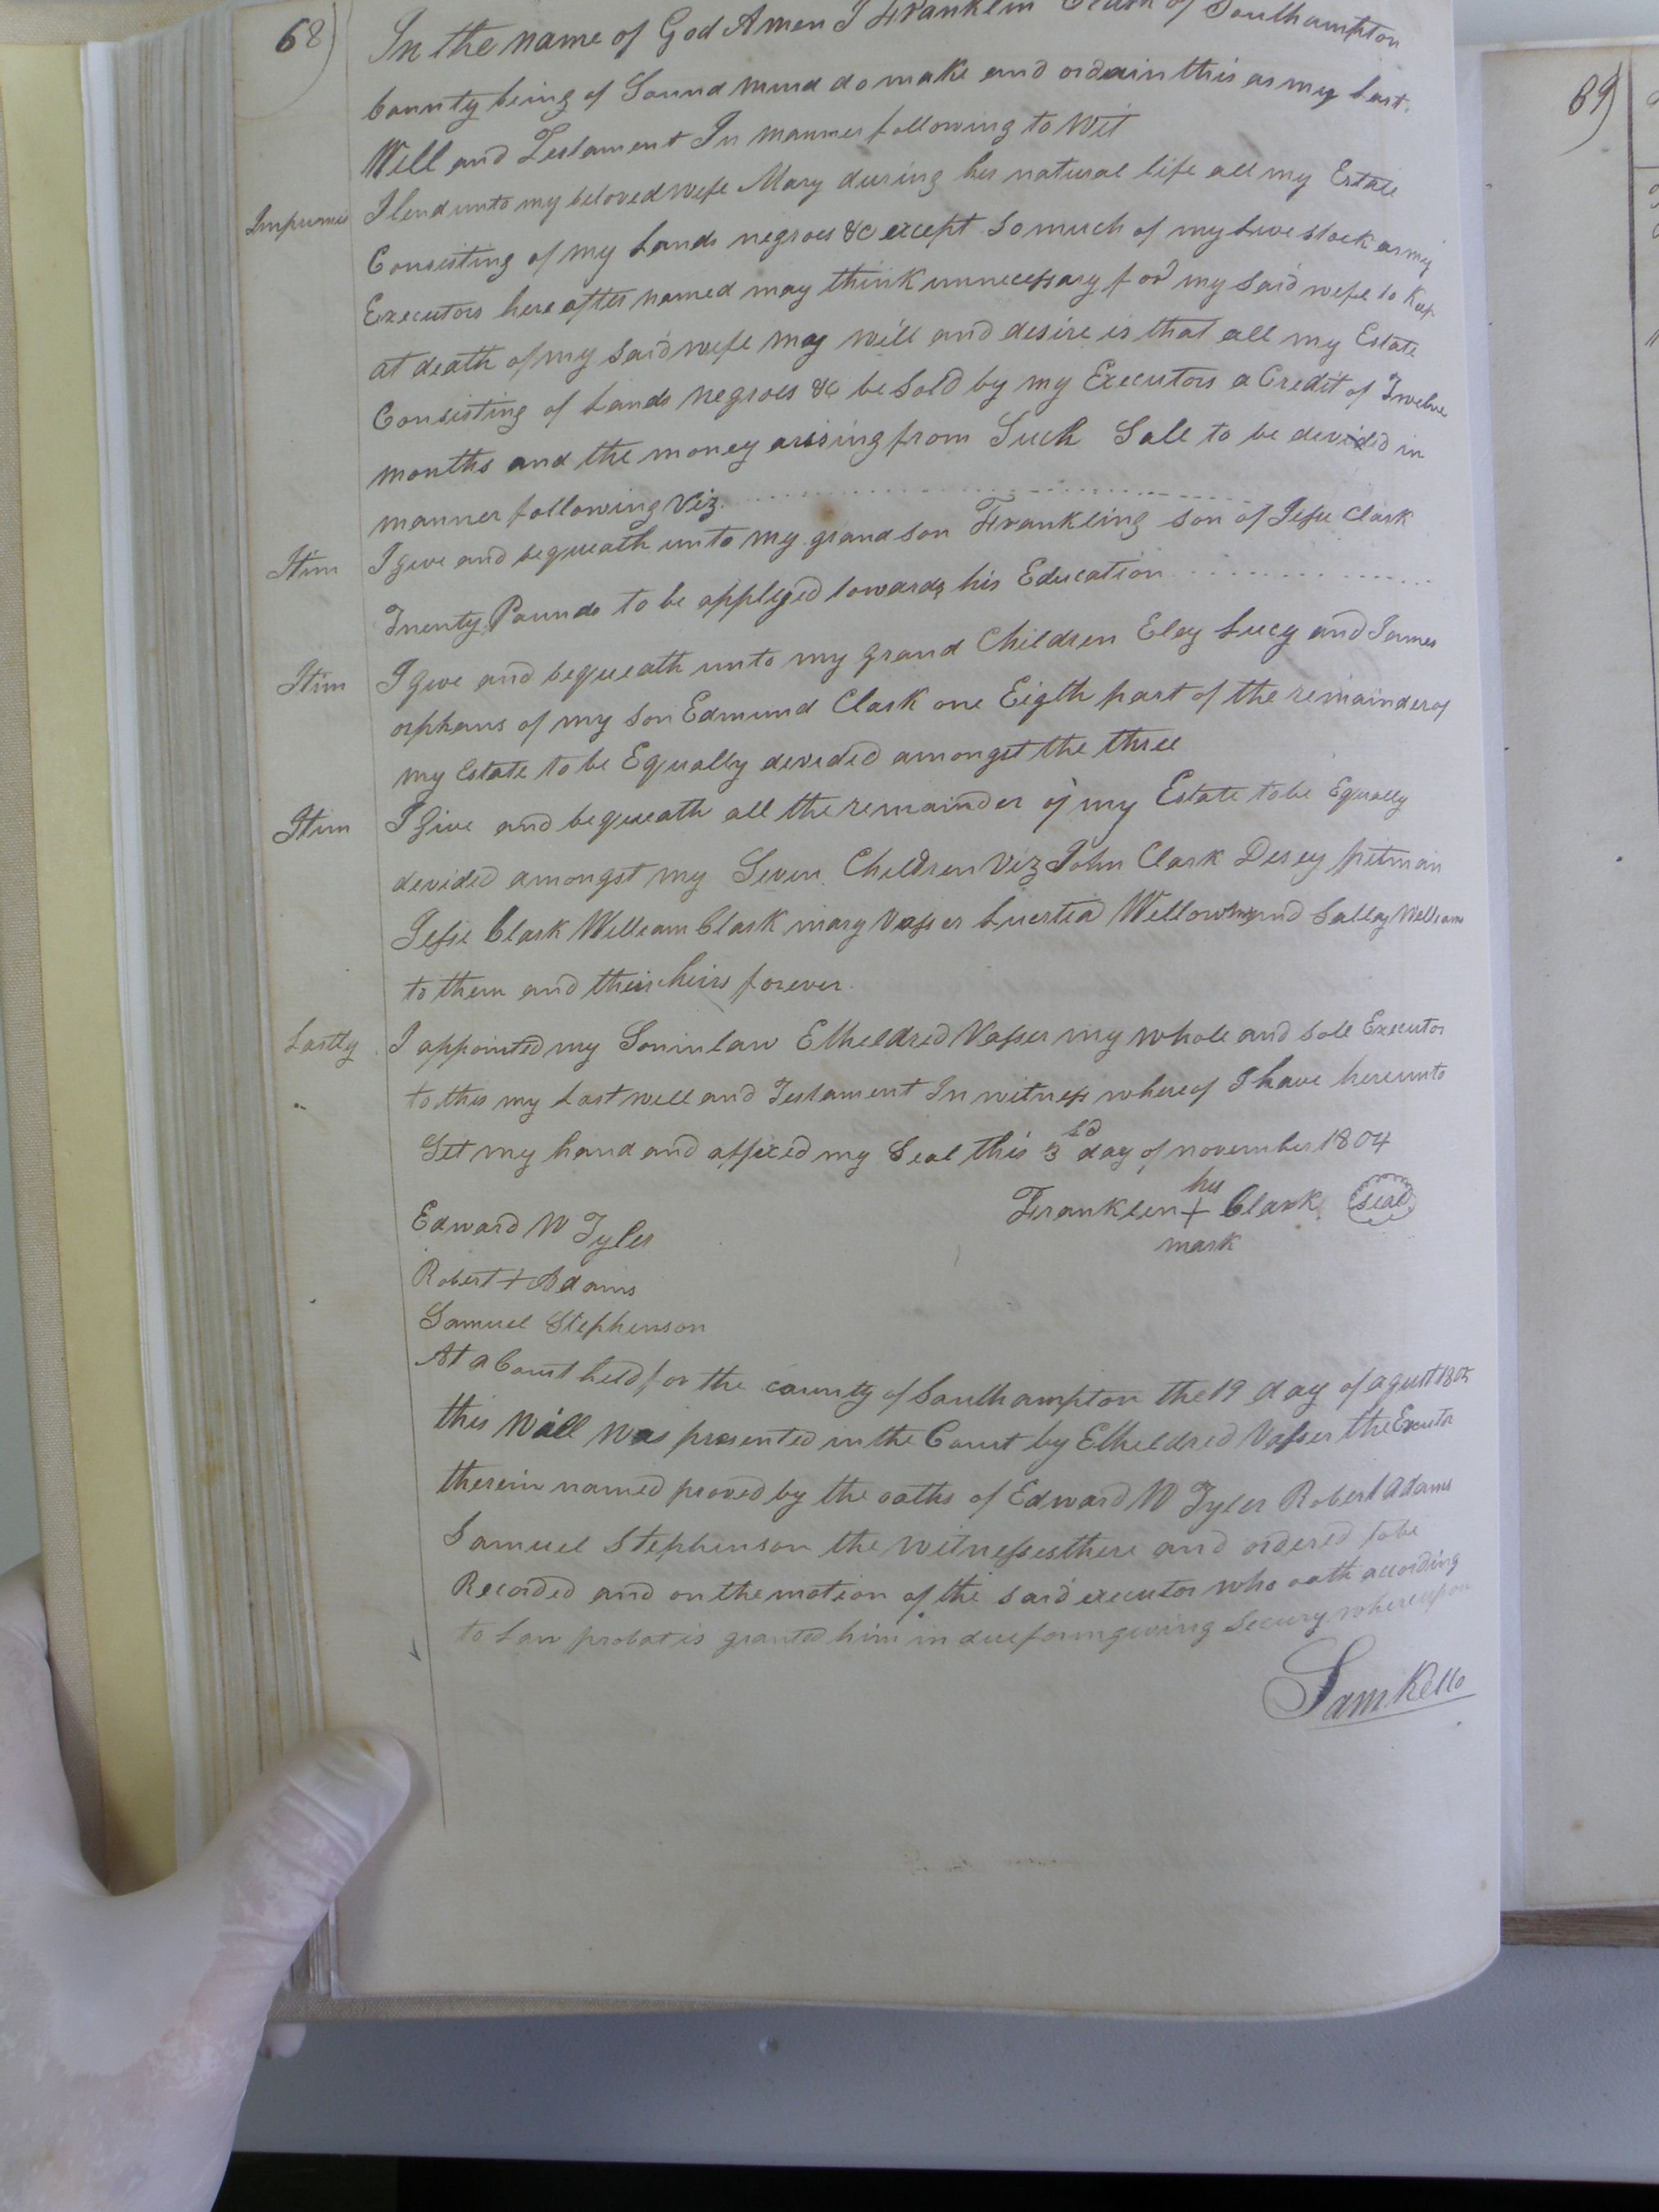 68)
In the name of God Amen I Franklin Clark of Southampton
County being of Sound mind do make and ordain this as my Last
Will and Testament In manner following to Wit
Imprimis I lend unto my beloved wife Mary during her natural life all my Estate
Consisting of my Lands negroes &c except So much of my Live stock as my
Executors hereafter named may think unnecessary for my said wife to Keep
at death of my said wife my will and desire is that all my Estate
Consisting of Lands negroes &c be Sold by my Executors a Credit of Twelve
months and the money arising from Such Sale to be devided in
manner following Viz.
Itim I give and bequeath unto my grand son Frankling son of Jesse Clark
Twenty Pounds to be applyed towards his Education
Itim I give and bequeath unto my grand Children Eley Lucy and James
orphans of my son Edmund Clark one Eigth part of the remainder of
my Estate to be Equally devided amongst the three
Itim I Give and bequeath all the remainder of my Estate to be Equally
devided amongst my Seven Children Viz John Clark Desey pitman
Jesse Clark William Clark mary Vasser Lucrtia and Salley William
to them and their heirs forever.
Lastly I appointed my Son in law Etheldred Vasser my whole and sole Executor
to this my Last will and Testament In witness whereof I have hereunto
Set my hand and affixed my Seal this 3 day of november 1804
his
Franklin + Clark seal
mark
Edward W Tyler
Robert + Adams
Samuel Stephenson
At a Court held for the county of Southampton the 19 day of agust 1805
this Will was presented in the Court by Etheldred Vasser the Executor
therein named proved by the oaths of Edward W Tyler Robert Adams
Samuel Stephenson the witnesses there and ordered to be
Recorded and on the motion of the said executor who oath according
to Law probat is granted him in due form giving Secury whereupon
Sam Kello
69)